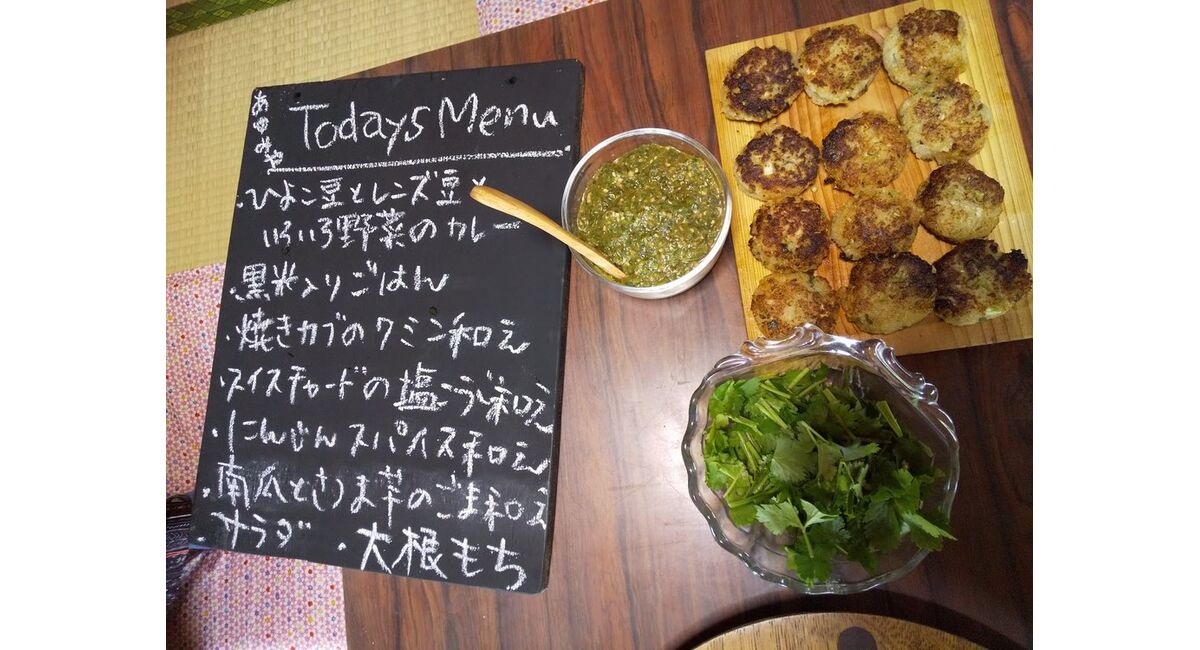 あゆみや
Todays Menu
・ひよこ豆とレンズ豆と
いろいろ野菜のカレー
・黒米入りごはん
・焼きカブのクミン和え
・スイスチャードの塩こうじ和え
・にんじんスパイス和え
・南瓜とさつま芋のごま和え
・サラダ ・大根もち